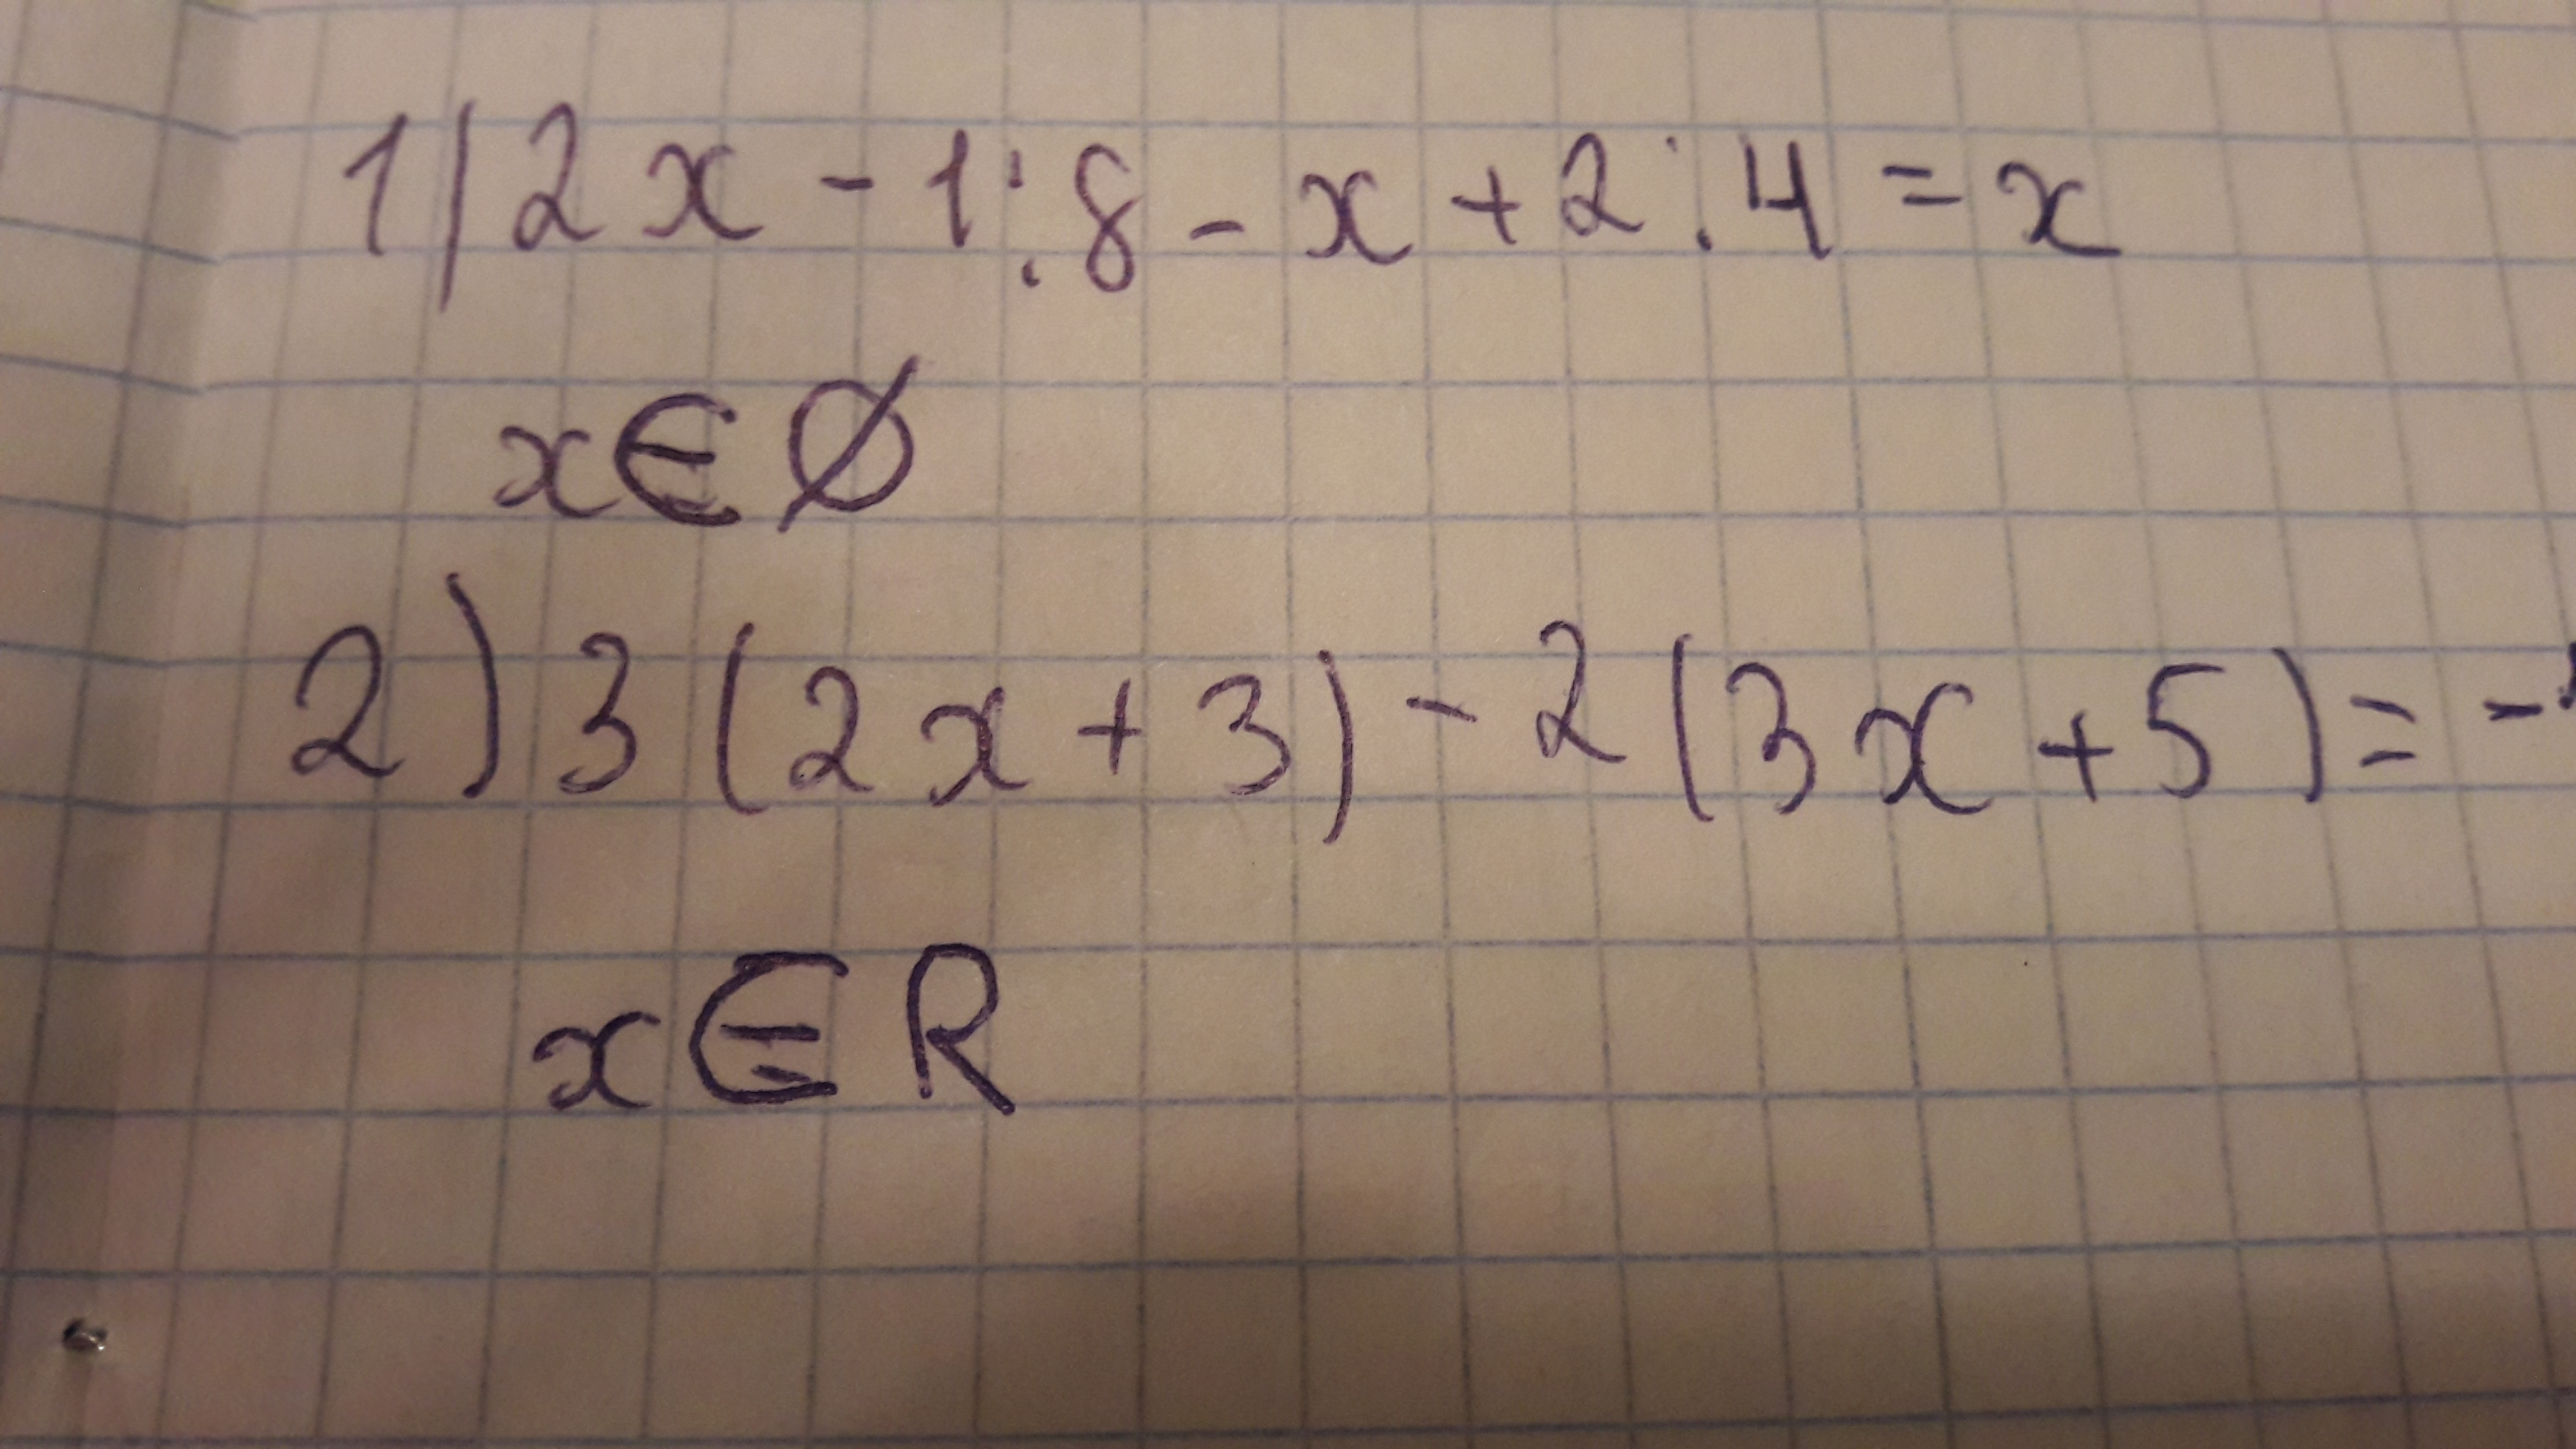 1) 2x - 1 : 8 - x + 2 : 4 = x
x ∈ ∅
2) 3 (2x + 3) - 2 (3x + 5) = -
x ∈ R